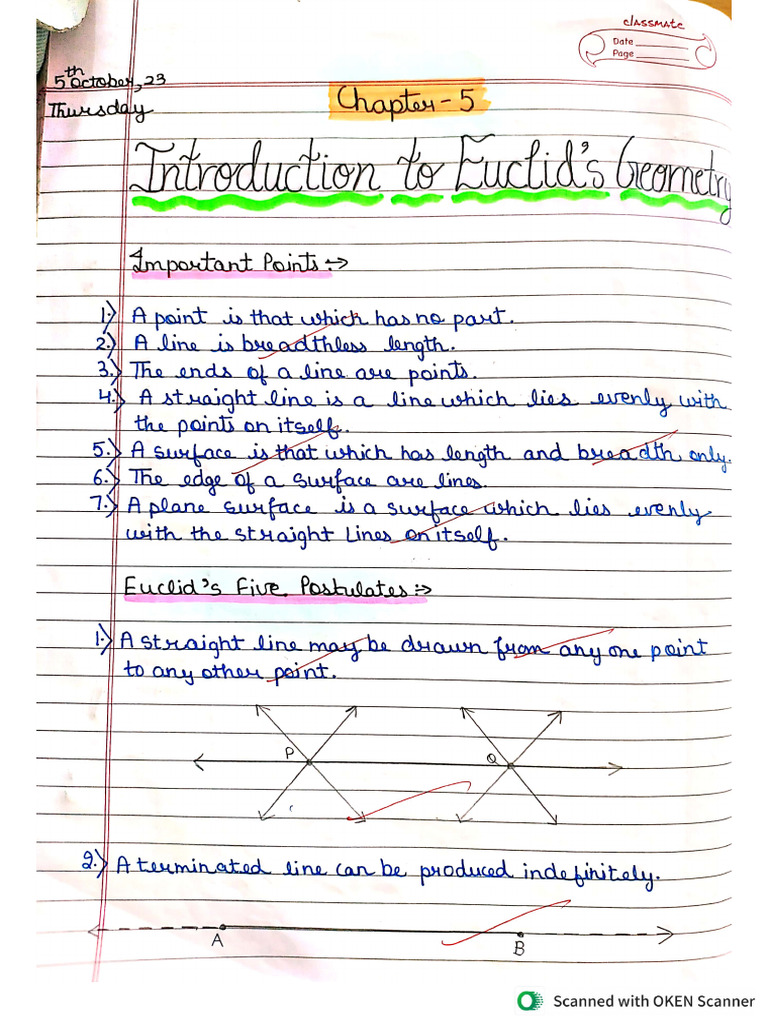 classmate
Date
Page
5th October, 23
Thursday
Chapter - 5
Introduction to Euclid's Geometry
Important Points :→
1.) A point is that which has no part.
2.) A line is breadthless length.
3.) The ends of a line are points.
4.) A straight line is a line which lies evenly with
the points on itself.
5.) A surface is that which has length and breadth only.
6.) The edge of a surface are lines.
7.) A plane surface is a surface which lies evenly
with the straight lines on itself.
Euclid's Five Postulates :→
1.) A straight line may be drawn from any one point
to any other point.
P Q
2.) A terminated line can be produced indefinitely.
A B
Scanned with OKEN Scanner